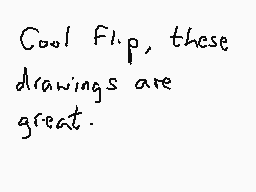 Cool Flip, these
drawings are
great.